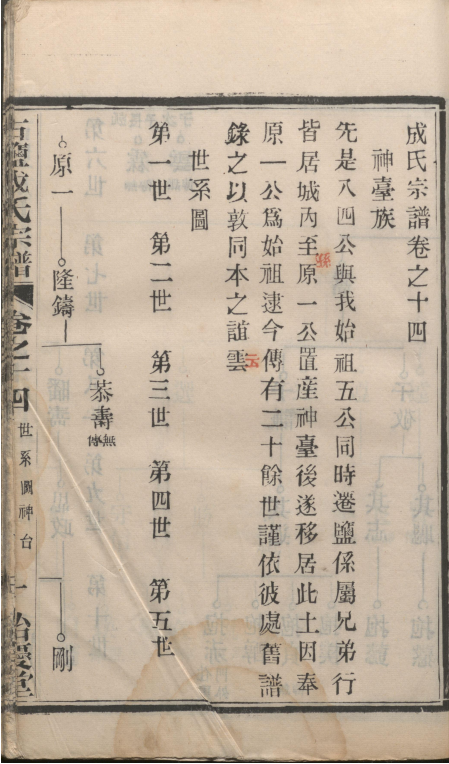 成氏宗譜卷之十四
神臺族
先是八四公與我始祖五公同時遷鹽係屬兄弟行
皆居城內至原一公置產神臺後遂移居此土因奉
孫
原一公爲始祖逮今傳有二十餘世謹依彼處舊譜
錄之以敦同本之誼雲
云
世系圖
第一世 第二世 第三世 第四世 第五世
恭壽 無傳
原一 隆鑄 剛
古鹽成氏宗譜 卷之十四 世系圖神台 一